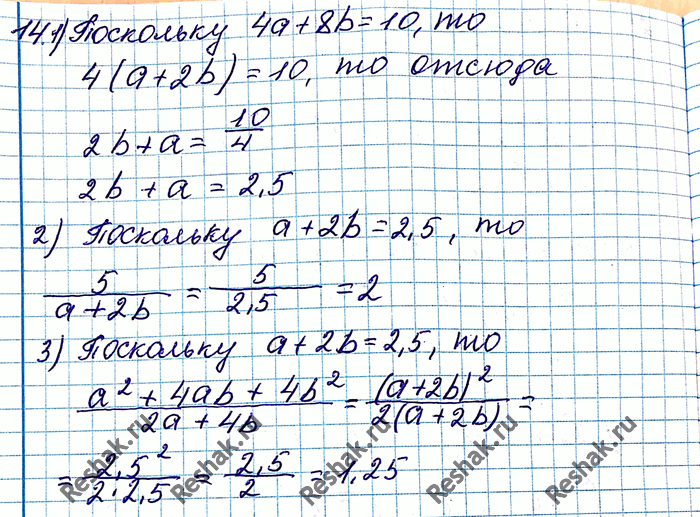 14.1) Поскольку 4a+8b=10, то
4(a+2b)=10, то отсюда
2b+a=10/4
2b+a=2,5
2) Поскольку a+2b=2,5, то
5/(a+2b) = 5/2,5 = 2
3) Поскольку a+2b=2,5, то
(a²+4ab+4b²)/(2a+4b) = (a+2b)²/(2(a+2b)) =
= 2,5²/(2·2,5) = 2,5/2 = 1,25
Reshak.ru Reshak.ru Reshak.ru Reshak.ru Reshak.ru